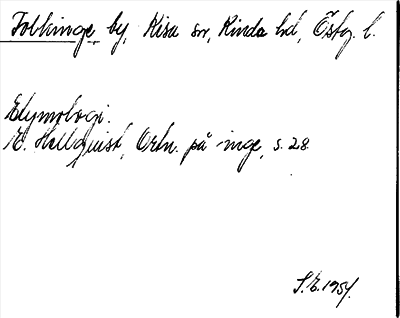 Tolkinge, by, Kisa sn, Kinda hd, Östg. l.
Etymologi.
E. Hellquist, Ortn. på inge, s. 28
S.E. 1954.